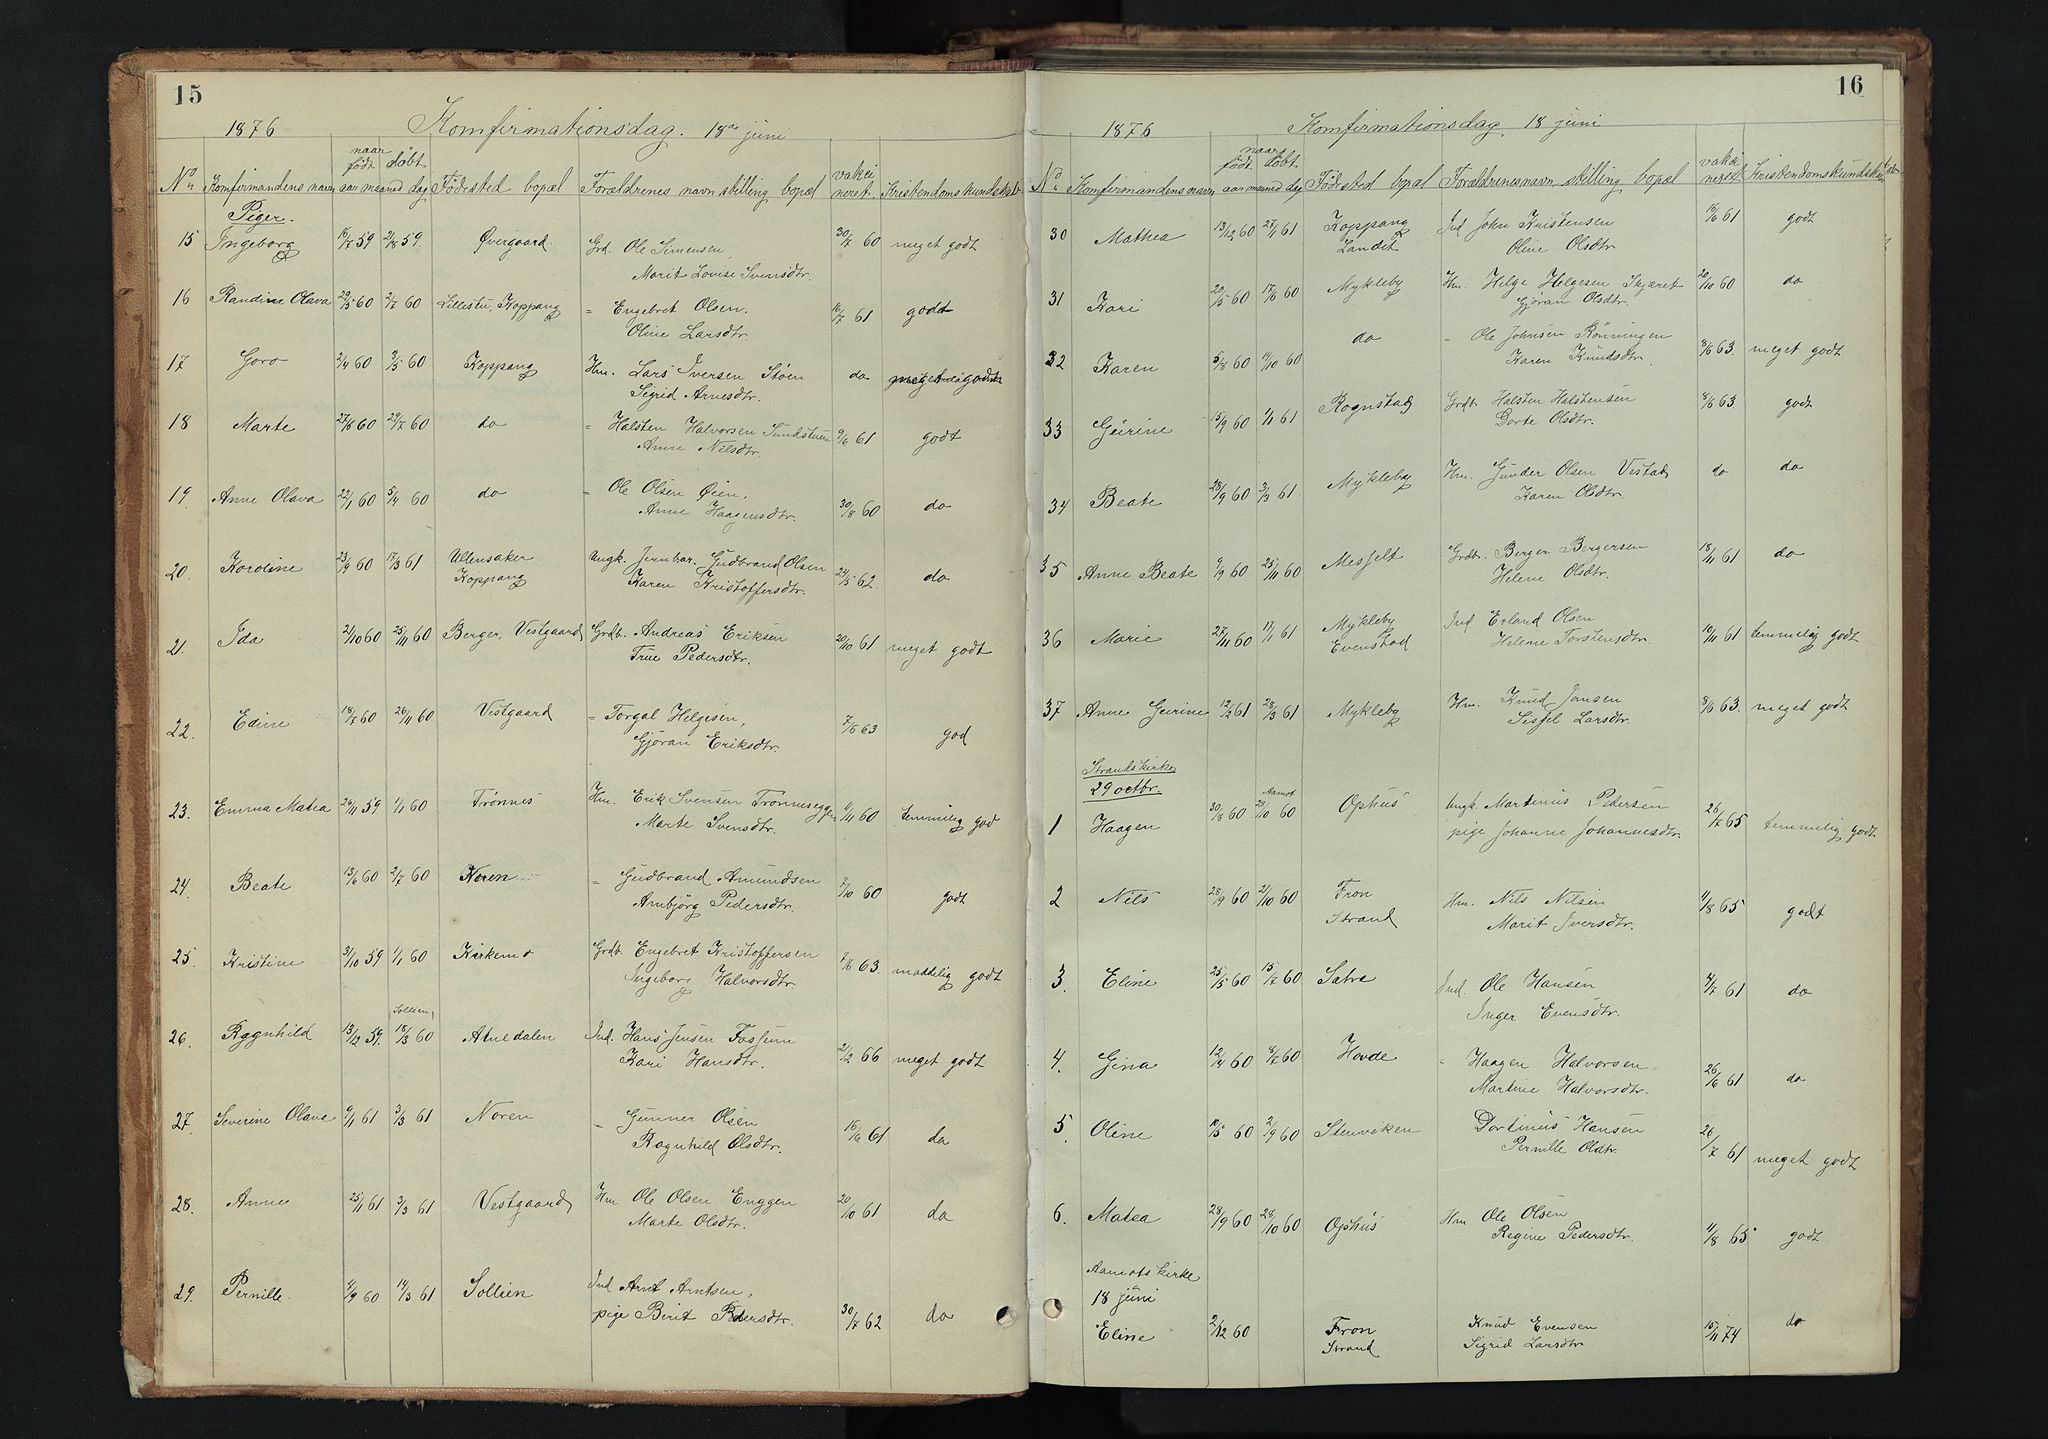 15
1876 Konfirmationsdag. 18de juni
No. Konfirmandens navn naar født døbt aar maaned dag Fødested bopæl Forældrenes navn stilling bopæl vakcineret. Kristendomskundskab
Piger.
15 Ingeborg 16/7 59 21/8 59. Øvergaard. Grd. Ole Simensen, 30/7 60 meget godt
Marit Lovise Svensdtr.
16 Randine Olava 29/5 60 2/7 60 Lillestu, Koppang = Engebret Olsen. 16/7 61 godt
Oline Larsdtr.
17 Goro 2/4 60 3/5 60 Koppang Hm. Lars Iversen Støen do
Sigrid Arnesdtr.
18 Marte 27/6 60 29/7 60 do = Halsten Halvorsen Sundstuen 9/6 61 godt
Anne Nilsdtr.
19. Anne Olava 22/1 60 5/4 60 do = Ole Olsen Øien, 30/8 60 do
Anne Haagensdtr.
20. Karoline 23/9 60 17/3 61 Ullensaker Ungk. Jernbar. Gudbrand Olsen 24/5 62. do
Koppang Karen Kristoffersdtr.
21. Ida 21/10 60 25/11 60 Berger, Vestgaard Grdb. Andreas Eriksen 20/10 61 meget godt
Trine Pedersdtr.
22. Edine 18/7 60 26/11 60 Vestgaard = Torgal Helgesen, 7/6 63 god
Gjøran Eriksdtr.
23. Emma Matea 24/11 59 1/1 60 Trønnes Hm. Erik Svensen Trønneseggen 11/11 60 temmelig god
Marte Svensdtr.
24. Beate 13/6 60 2/7 60 Noren = Gudbrand Amundsen 7/10 60 godt
Arnbjørg Pedersdtr.
25. Kristine 31/10 59 1/1 60 Kirkemo Grdb. Engebret Kristoffersen 8/6 63. maadelig godt
Ingeborg Halvorsdtr.
26. Ragnhild 13/12 59. Sollien, 18/3 60 Atnedalen Ind. Hans Jensen Fossum 21/2 66 meget godt
Kari Hansdtr.
27. Severine Olava 9/1 61 3/3 61 Noren = Gunner Olsen 16/6 61 do
Ragnhild Olsdtr.
28. Anne 25/1 61 3/3 61 Vestgaard Hm Ole Olsen Enggen 20/10 61 do
Marte Olsdtr.
29. Pernille. 4/9 60 14/3 61 Sollien Ind Arnt Arntsen,
pige Birit Pedersdtr. 30/7 62 do
16
1876 Konfirmationsdag 18 juni
No. Konfirmandens navn naar født døbt. aar maaned dag Fødested bopæl Forældrenes navn stilling bopæl vakcineret Kristendomskundskab
30 Mathea 13/12 60 27/1 61 Koppang Ind John Kristensen 16/6 61 godt
Landet Oline Olsdtr.
31 Kari 20/5 60 17/6 60 Mykleby Hm. Helge Helgesen Skjæret 20/10 60 do
Gjøran Olsdtr.
32 Karen 5/8 60 14/10 60 do = Ole Johnsen Rønningen 8/6 63. meget godt
Karen Knudsdtr.
33 Geirine 15/9 60 1/1 61 Rognstad Grdb. Halsten Halstensen 8/6 63. godt
Dorte Olsdtr.
34 Beate 28/9 60 3/3 61. Mykleby Hm. Gunder Olsen Vestad do do
Karen Olsdtr.
35 Anne Beate 9/9 60 25/11 60 Messelt Grdb. Berger Bergersen 18/11 61 do
Helene Olsdtr.
36 Marie 27/11 60 13/1 61 Mykleby Ind Erland Olsen 10/11 61 temmelig godt
Evenstad Helene Torstensdtr.
37 Anne Geirine 12/2 61 28/3 61 Mykleby Hm. Knud Jansen 8/6 63. meget godt
Sissel Larsdtr.
Strandskirke
29 octbr.
1 Haagen 30/8 60 Aamot 28/10 60 Ophus Ungk. Martinus Pedersen 26/7 65 temmelig godt
pige Johanne Johannesdtr.
2 Nils 28/9 60 21/10 60 Fron Hm. Nils Nilsen 11/8 65 godt
Strand Marit Iversdtr.
3. Eline 25/5 60 15/7 60 Satre Ind. Ole Hansen 4/7 61 do
Inger Evensdtr.
4. Gina 12/4 60 8/7 60 Hovde = Haagen Halvorsen. 26/6 61 do
Martine Halvorsdtr.
5. Oline 10/5 60 2/9 60 Stenviken Dortinus Hansen 26/7 61 meget godt
Pernille Olsdtr.
6. Matea 28/9 60 28/10 60 Ophus Hm Ole Olsen 11/8 65 godt
Regine Pedersdtr.
Aamots kirke
18 juni
Eline 2/12 60 Fron Knud Evensen 15/11 74 do
Strand Sigrid Larsdtr